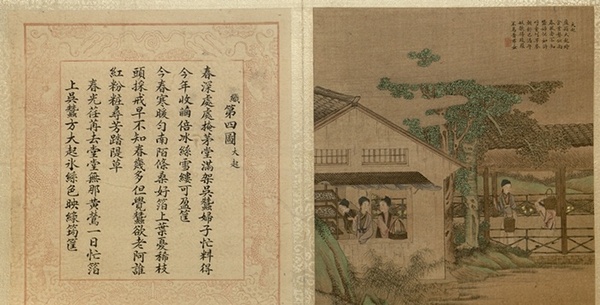 織第四圖 大起
春深處處掩茅堂滿架吳蠶婦子忙料得
今年收繭倍冰絲雪縷可盈筐
今春寒暖勻南陌條桑好箔上葉憂稀枝
頭採戒早不知春幾多但覺蠶欲老阿誰
紅粉粧尋芳踏隄草
春光荏苒去堂堂無那黃鶯一日忙箔
上吳蠶方大起氷絲色映綠筠筐
大起